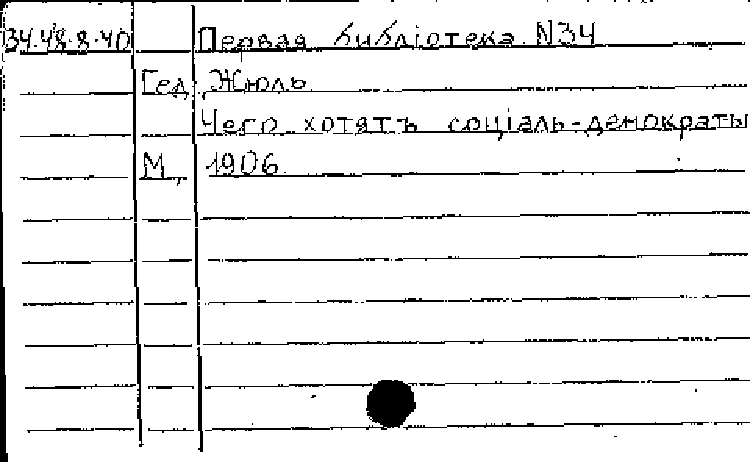 34.48.8.40 Первая библіотека N34
Гед, Жюль
Чего хотятъ соціаль-демократы
М., 1906